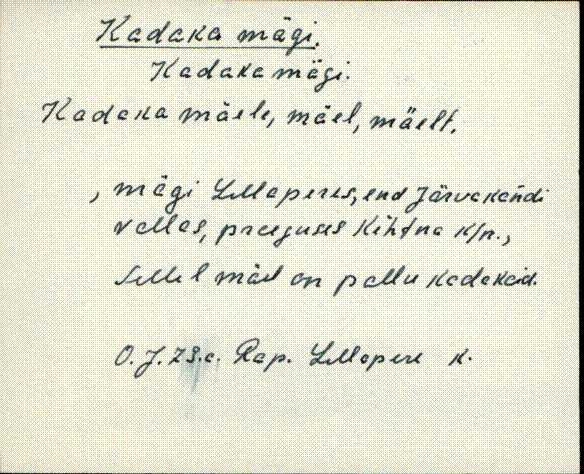 Kadaka mägi.
Kadaka mägi.
Kadaka mäele, mäel, mäelt.
, mägi Lellaperes, end Järvakandi
vallas, praeguses Kehtna k/n.,
Sellel mäel on pallu kadakaid.
O. J. 23.a. Rap. Lellapere k.